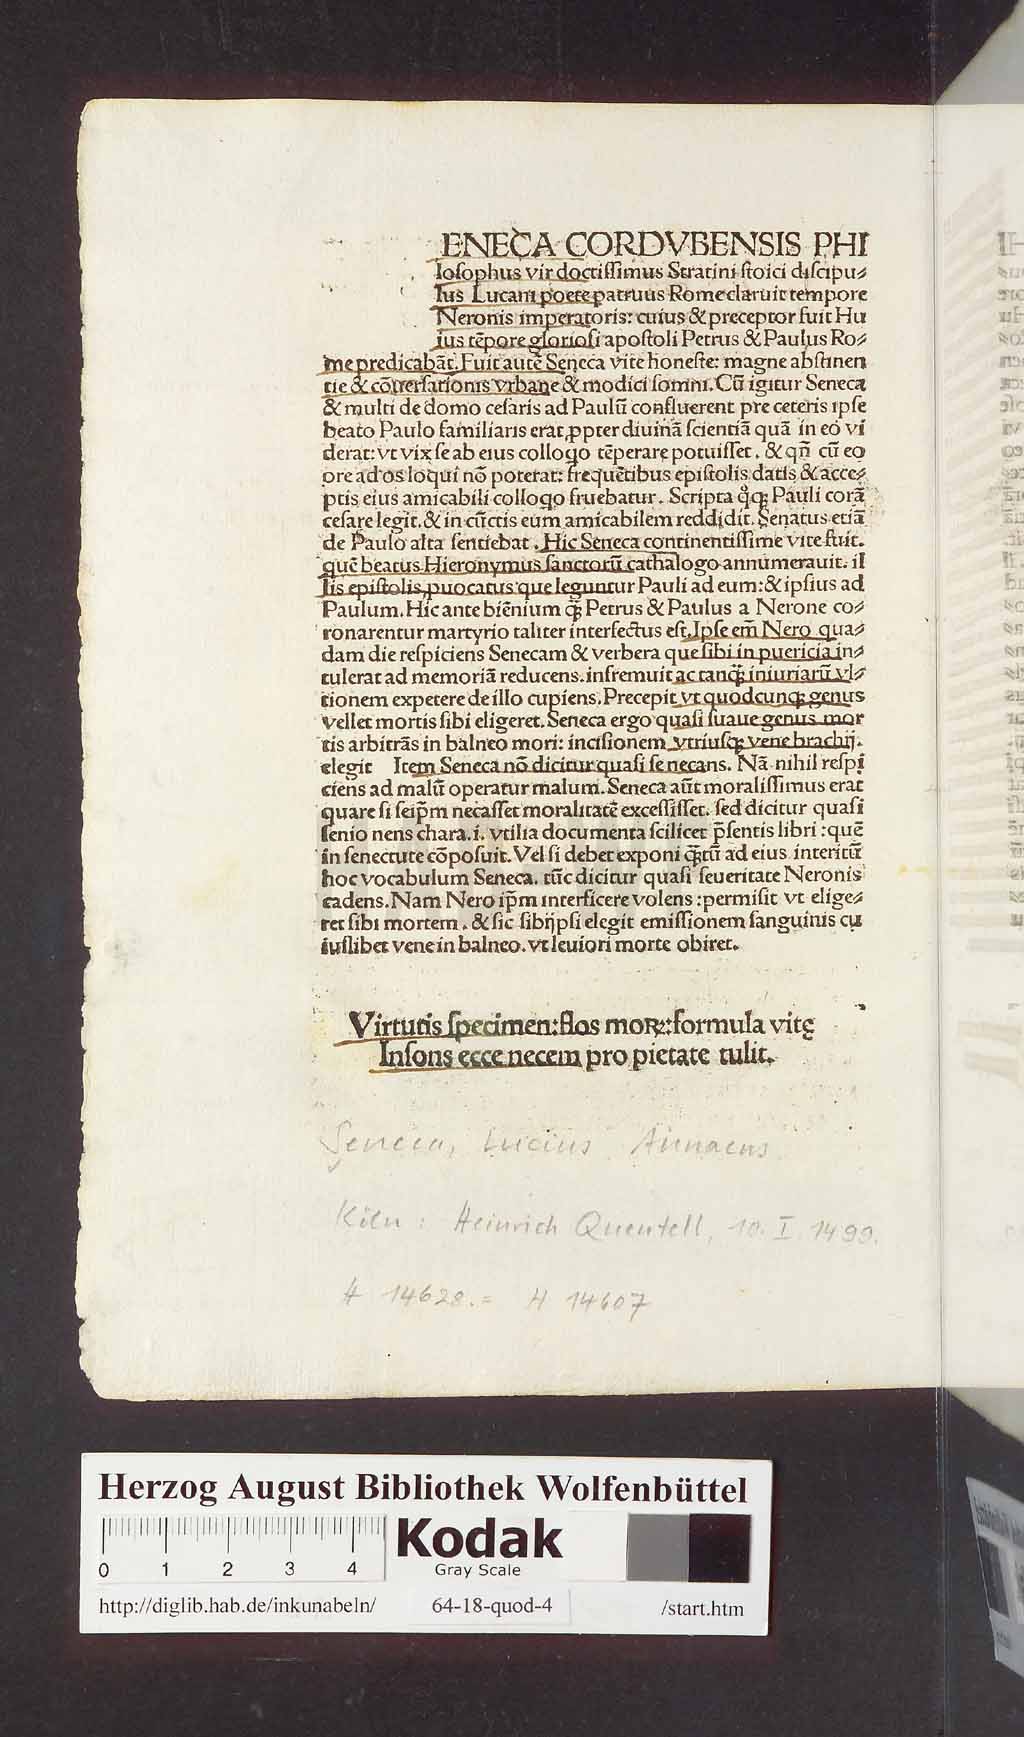 ENECA CORDVBENSIS PHI
losophus vir doctissimus Stratini stoici discipu⸗
lus Lucani poete patruus Rome claruit tempore
Neronis imperatoris: cuius & preceptor fuit Hu
ius tēpore gloriosi apostoli Petrus & Paulus Ro⸗
me predicabāt. Fuit autē Seneca vite honeste: magne abstinen
tie & cōversationis vrbane & modici somni. Cū igitur Seneca
& multi de domo cesaris ad Paulū confluerent pre ceteris ipse
beato Paulo familiaris erat, ꝓpter diuinā scientiā quā in eo vi
derat: vt vix se ab eius colloqo tēperare potuisset. & qñ cū eo
ore ad os loqui nō poterat: frequētibus epistolis datis & acce⸗
ptis eius amicabili colloqo fruebatur. Scripta qͦqꝫ Pauli corā
cesare legit. & in cūctis eum amicabilem reddidit. Senatus etiā
de Paulo alta sentiebat. Hic Seneca continentissime vite fuit.
quē beatus Hieronymus sanctorū cathalogo annumerauit. il
lis epistolis puocatus que leguntur Pauli ad eum: & ipsius ad
Paulum. Hic ante biēnium qꝫ̄ Petrus & Paulus a Nerone co⸗
ronarentur martyrio taliter interfectus est. Ipse em̄ Nero qua⸗
dam die respiciens Senecam & verbera que sibi in puericia in⸗
tulerat ad memoriā reducens. infremuit ac tanqꝫ̄ iniuriarū vl⸗
tionem expetere de illo cupiens. Precepit vt quodcunqꝫ genus
vellet mortis sibi eligeret. Seneca ergo quasi suaue genus mor
tis arbitrās in balneo mori: incisionem vtriusqꝫ vene brachij.
elegit Item Seneca nō dicitur quasi se necans. Nā nihil respi
ciens ad malū operatur malum. Seneca aūt moralissimus erat
quare si seip̄m necasset moralitatē excessisset. sed dicitur quasi
senio nens chara. i. vtilia documenta scilicet p̄sentis libri: quē
in senectute cōposuit. Vel si debet exponi qꝫ̄tū ad eius interitū
hoc vocabulum Seneca. tūc dicitur quasi seueritate Neronis
cadens. Nam Nero ip̄m interficere volens: permisit vt elige⸗
ret sibi mortem. & sic sibijpsi elegit emissionem sanguinis cu
iuslibet vene in balneo. vt leuiori morte obiret.
Virtutis specimen: flos moꝝ: formula vitę
Insons ecce necem pro pietate tulit.
Seneca, Lucius Annaeus
Köln: Heinrich Quentell, 10. I. 1499.
H 14628. = H 14607
Herzog August Bibliothek Wolfenbüttel
0 1 2 3 4
Kodak
Gray Scale
http://diglib.hab.de/inkunabeln/ 64-18-quod-4 /start.htm